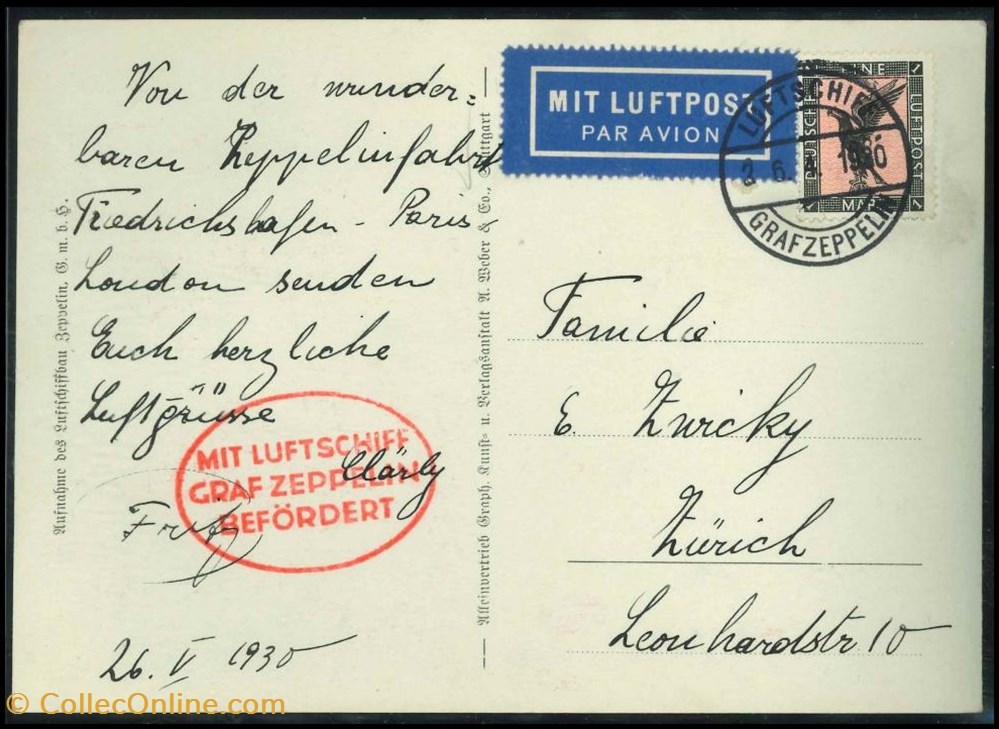 Von der wunder=
baren Zeppelinfahrt
Friedrichshafen - Paris
London senden
Euch herzliche
Luftgrüsse
Clärly
Fritz
26. V 1930
MIT LUFTSCHIFF
GRAF ZEPPELIN
BEFÖRDERT
Aufnahme des Luftschiffbau Zeppelin, G. m. b. H.
Alleinvertrieb Graph. Kunst- u. Verlagsanstalt A. Weber & Co., Stuttgart
MIT LUFTPOST
PAR AVION
LUFTSCHIFF
26. 1930
GRAF ZEPPELIN
EINE
DEUTSCHE
LUFTPOST
1 MARK 1
Familie
E. Zwicky
Zürich
Leonhardstr 10
© CollecOnline.com